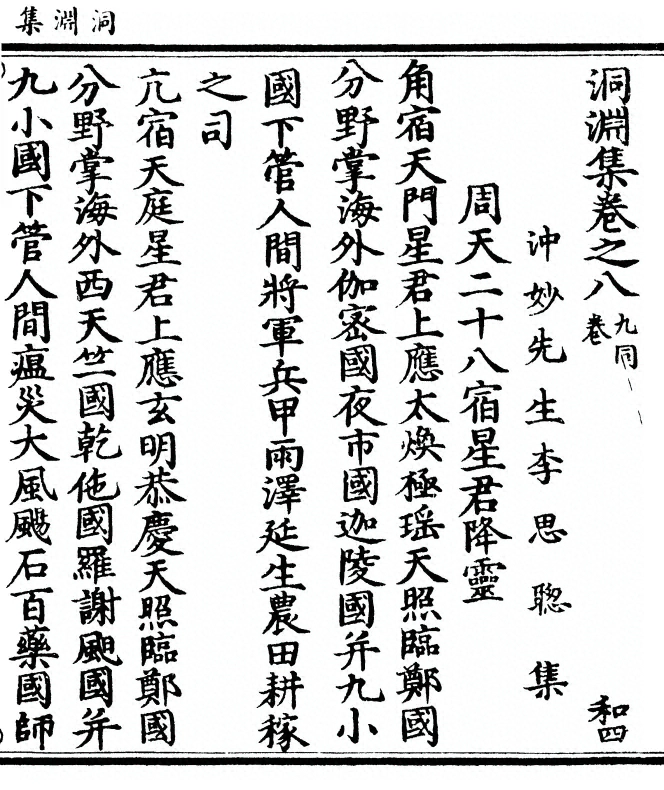 洞淵集
洞淵集卷之八 九同卷 和四
沖妙先生李思聰集
周天二十八宿星君降靈
角宿天門星君上應太煥極瑶天照臨鄭國
分野掌海外伽密國夜市國迦陵國并九小
國下管人間將軍兵甲雨澤延生農田耕稼
之司
亢宿天庭星君上應玄明恭慶天照臨鄭國
分野掌海外西天竺國乾佗國羅謝䬠國并
九小國下管人間瘟災大風颺石百藥國師